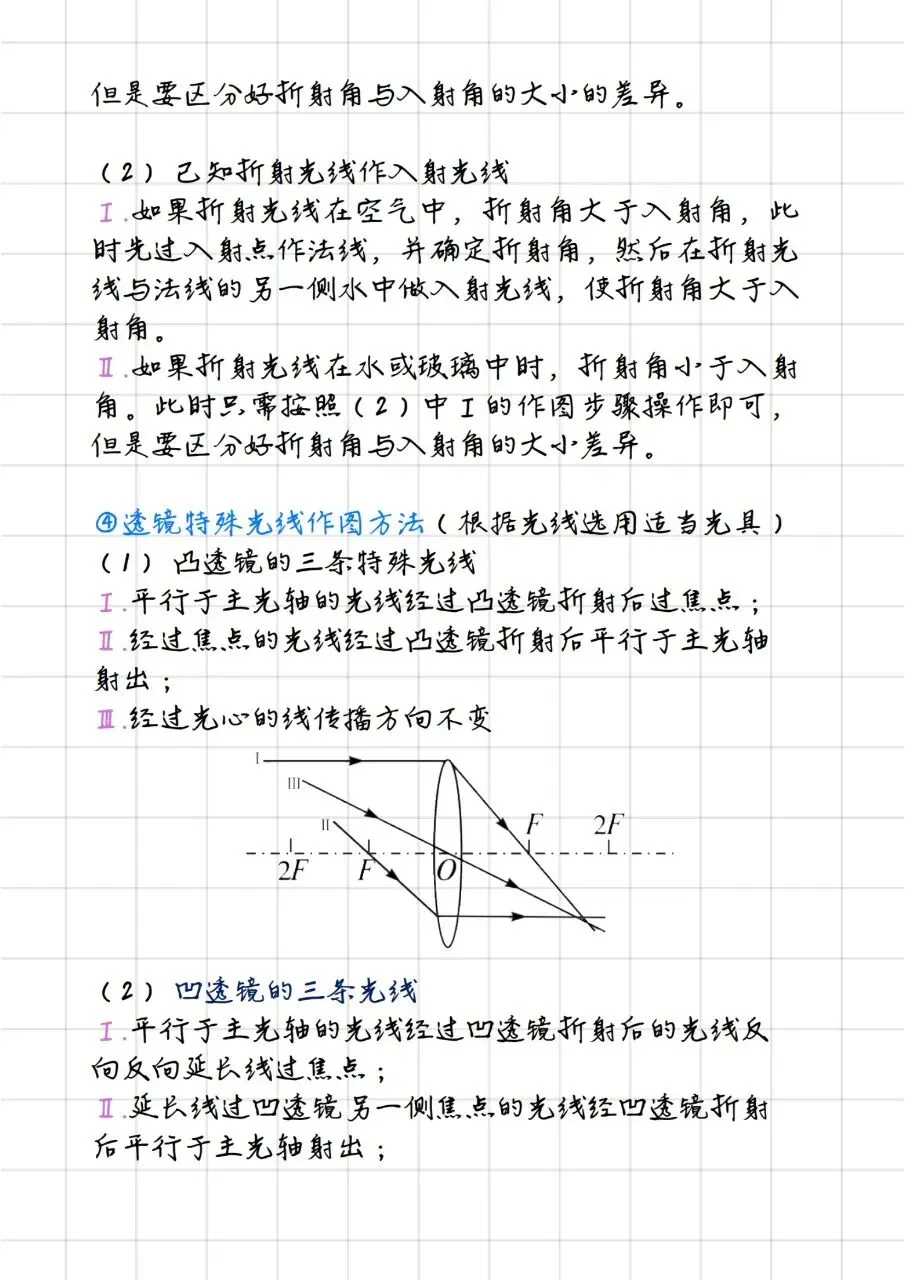 但是要区分好折射角与入射角的大小的差异。
（2）已知折射光线作入射光线
Ⅰ.如果折射光线在空气中，折射角大于入射角，此
时先过入射点作法线，并确定折射角，然后在折射光
线与法线的另一侧水中做入射光线，使折射角大于入
射角。
Ⅱ.如果折射光线在水或玻璃中时，折射角小于入射
角。此时只需按照（2）中Ⅰ的作图步骤操作即可，
但是要区分好折射角与入射角的大小差异。
④透镜特殊光线作图方法（根据光线选用适当光具）
（1）凸透镜的三条特殊光线
Ⅰ.平行于主光轴的光线经过凸透镜折射后过焦点；
Ⅱ.经过焦点的光线经过凸透镜折射后平行于主光轴
射出；
Ⅲ.经过光心的线传播方向不变
I
III
II
F
2F
2F
F
O
（2）凹透镜的三条光线
Ⅰ.平行于主光轴的光线经过凹透镜折射后的光线反
向反向延长线过焦点；
Ⅱ.延长线过凹透镜另一侧焦点的光线经凹透镜折射
后平行于主光轴射出；